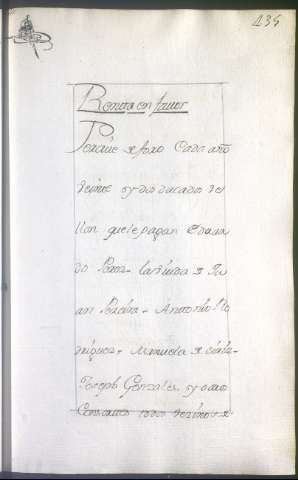 135
Renta en favor
Percive de foro Cada año
veinte y dos ducados de
llon que le pagan Eduar
do Perez - la viuda de Ju
an Pereira - Antonio Ro
driguez - Manuela de
Joseph Gonzales, y otros
Consortes todos vecinos de